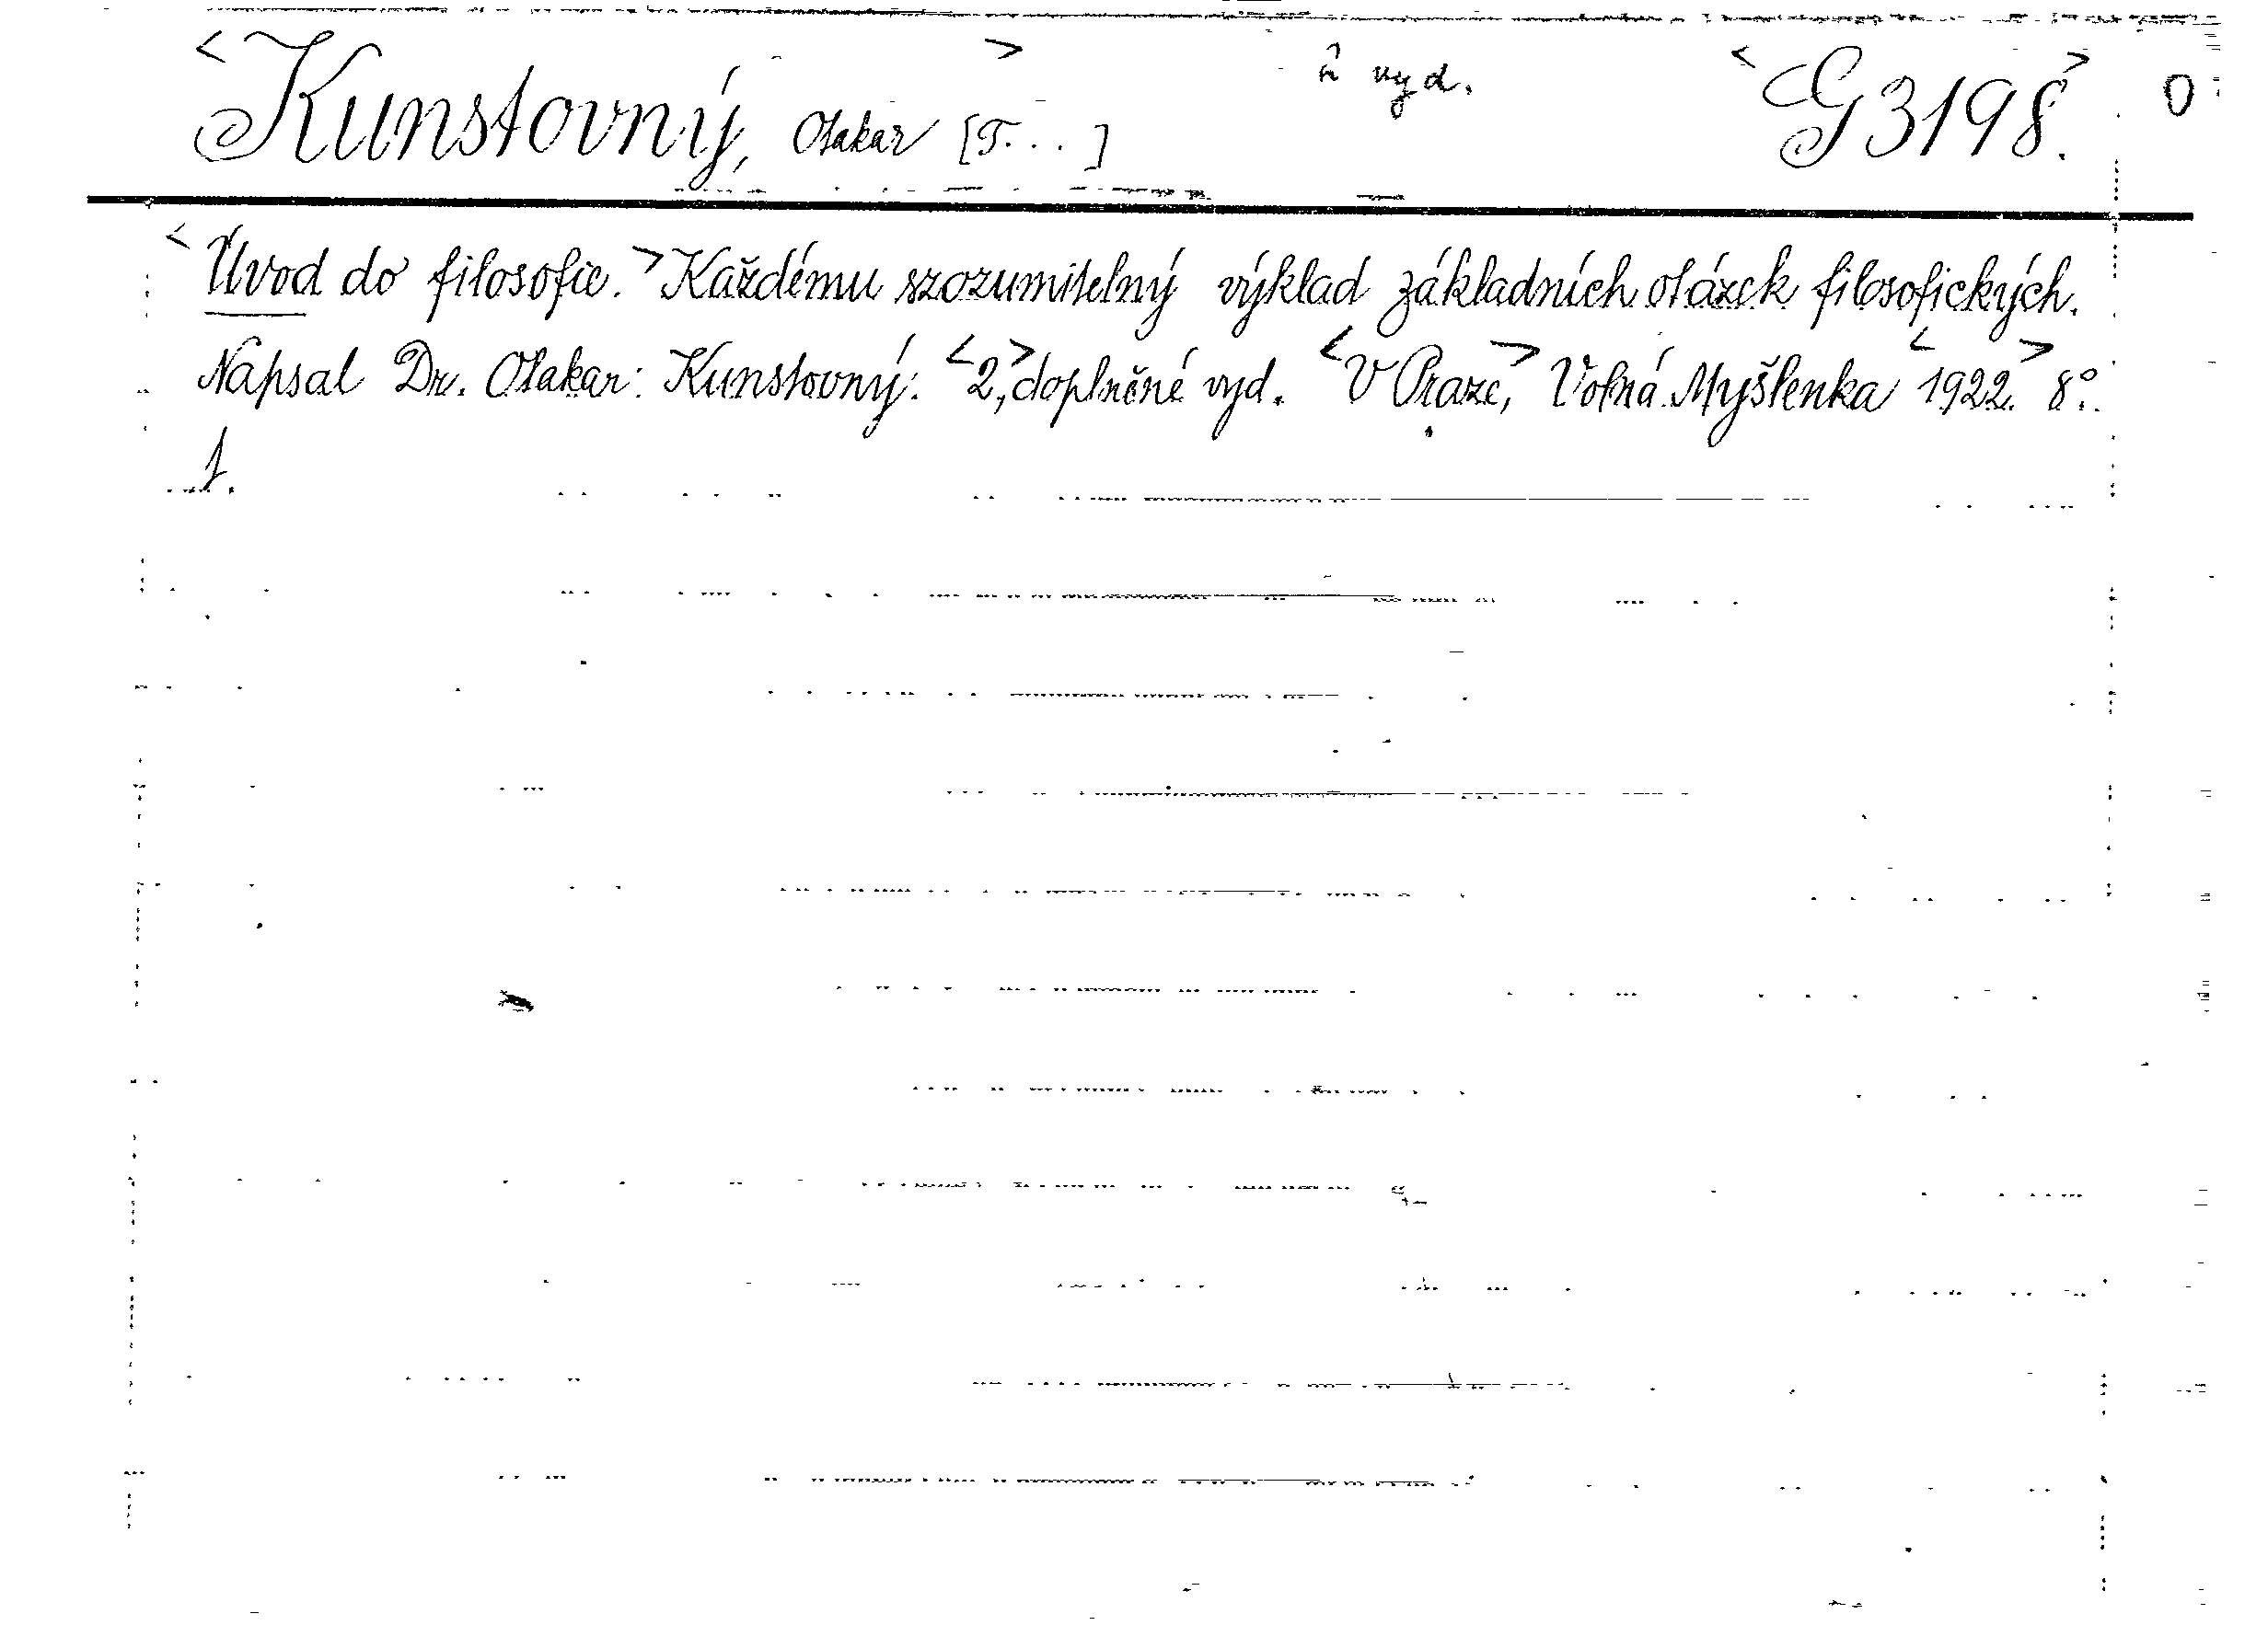 <Kunstovný,> Otakar [T...] vyd. <G 3198.> 0
<Úvod do filosofie.> Každému srozumitelný výklad základních otázek filosofických.
Napsal Dr. Otakar Kunstovný. <2,> doplněné vyd. <V Praze,> Volná Myšlenka <1922.> 8°.
1.